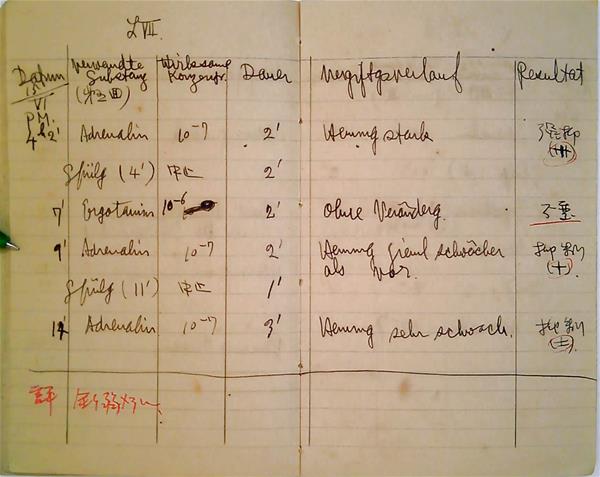 L VII.
Datum Verwandte Substanz (第三回) Wirksame Konzentr. Dauer Vergiftgsverlauf Resultat
15/VI
P.M.
4h2' Adrenalin 10⁻⁷ 2' Hemmg stark (卌)
Gspülg (4') 中止 2'
7' Ergotamin 10⁻⁶ 2' ohne Verändrg.
9' Adrenalin 10⁻⁷ 2' Hemmg schwächer als vor. 抑制 (+)
Gspülg (11') 中止 1'
12' Adrenalin 10⁻⁷ 3' Hemmg sehr schwach. 抑制 (±)
評